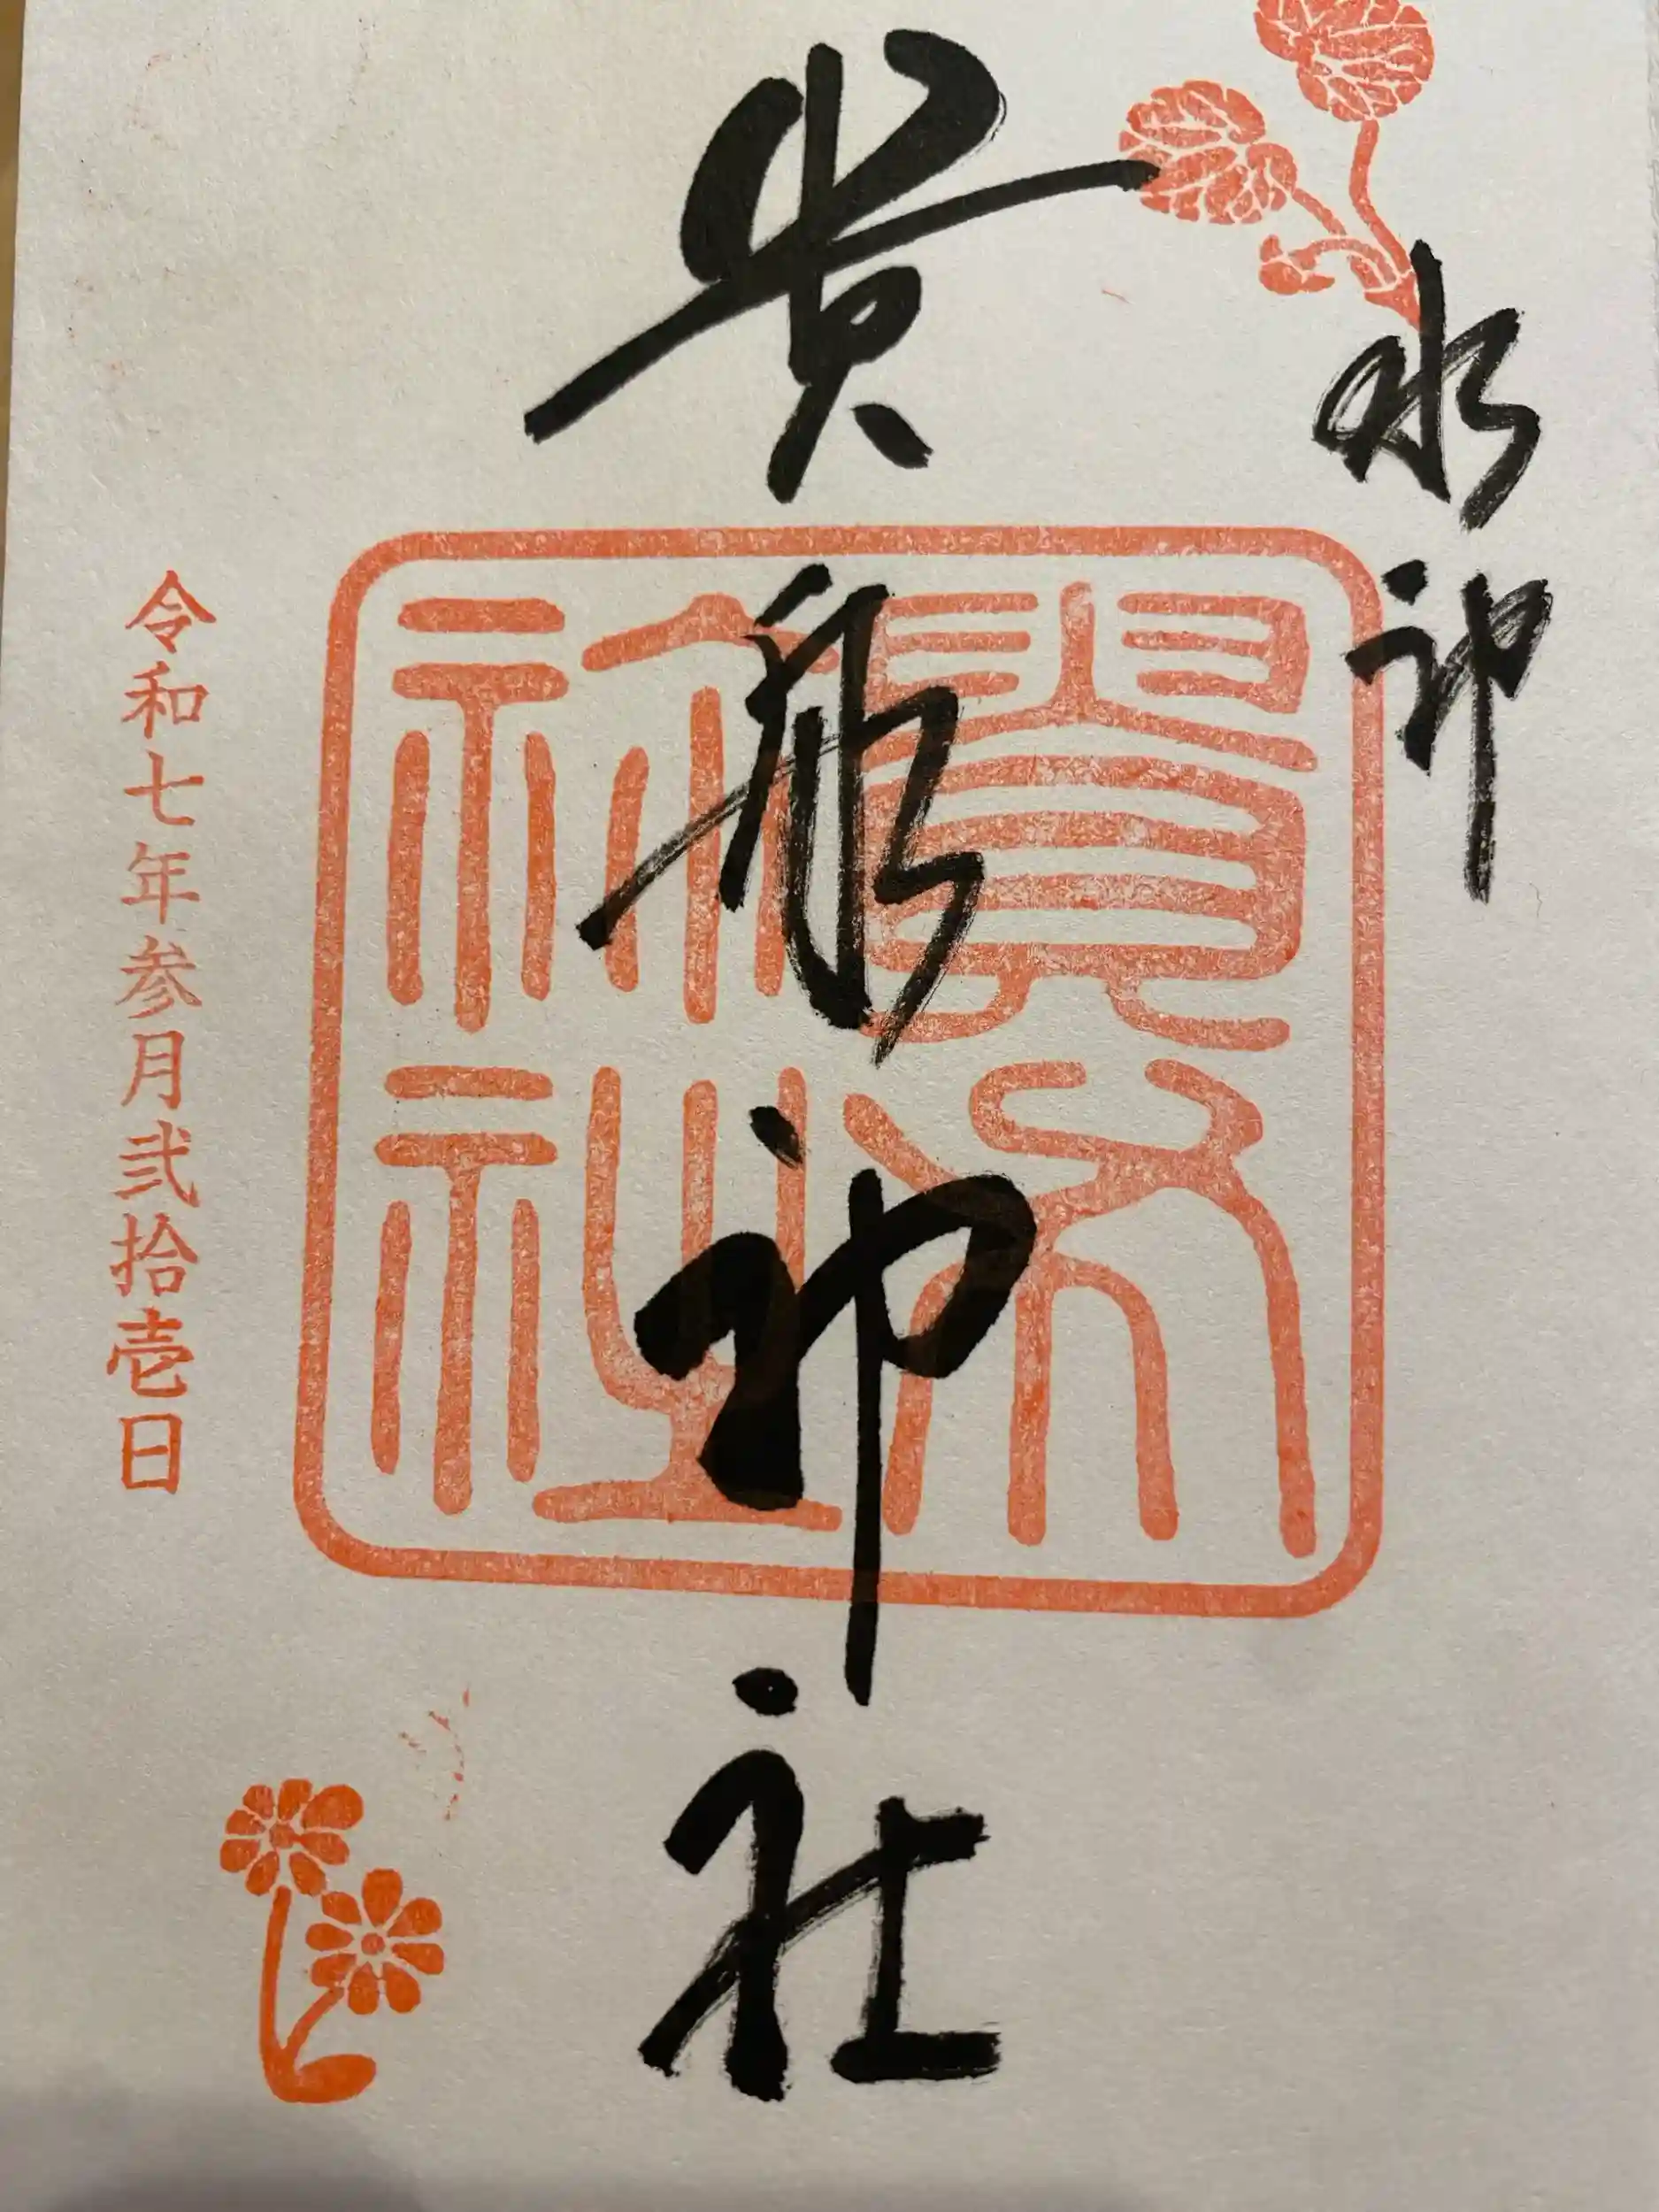 水神
貴船神社
貴布祢社
令和七年参月弐拾壱日